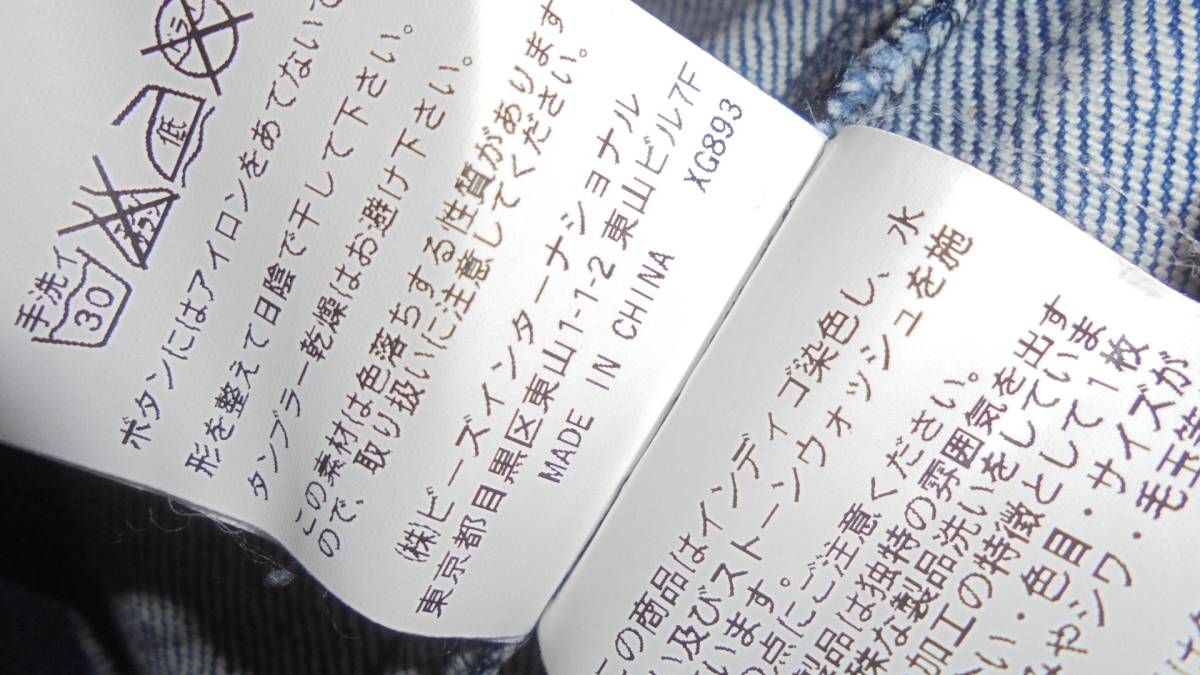 手洗イ
30
低
ボタンにはアイロンをあてないで
形を整えて日陰で干して下さい。
タンブラー乾燥はお避け下さい。
この素材は色落ちする性質があります
ので、取り扱いに注意してください。
㈱ビーズインターナショナル
東京都目黒区東山1-1-2 東山ビル7F
MADE IN CHINA
XG893
この商品はインディゴ染色し、水
い及びストーンウォッシュを施
います。
の点にご注意ください。
製品は独特の雰囲気を出す
殊な製品洗いをしていま
加工の特徴として1枚
い・色目・サイズが
みやシワ・毛